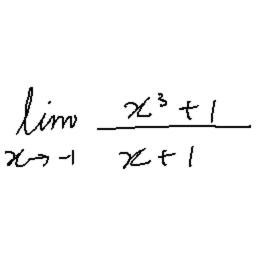 lim x³ + 1
x→-1 x + 1